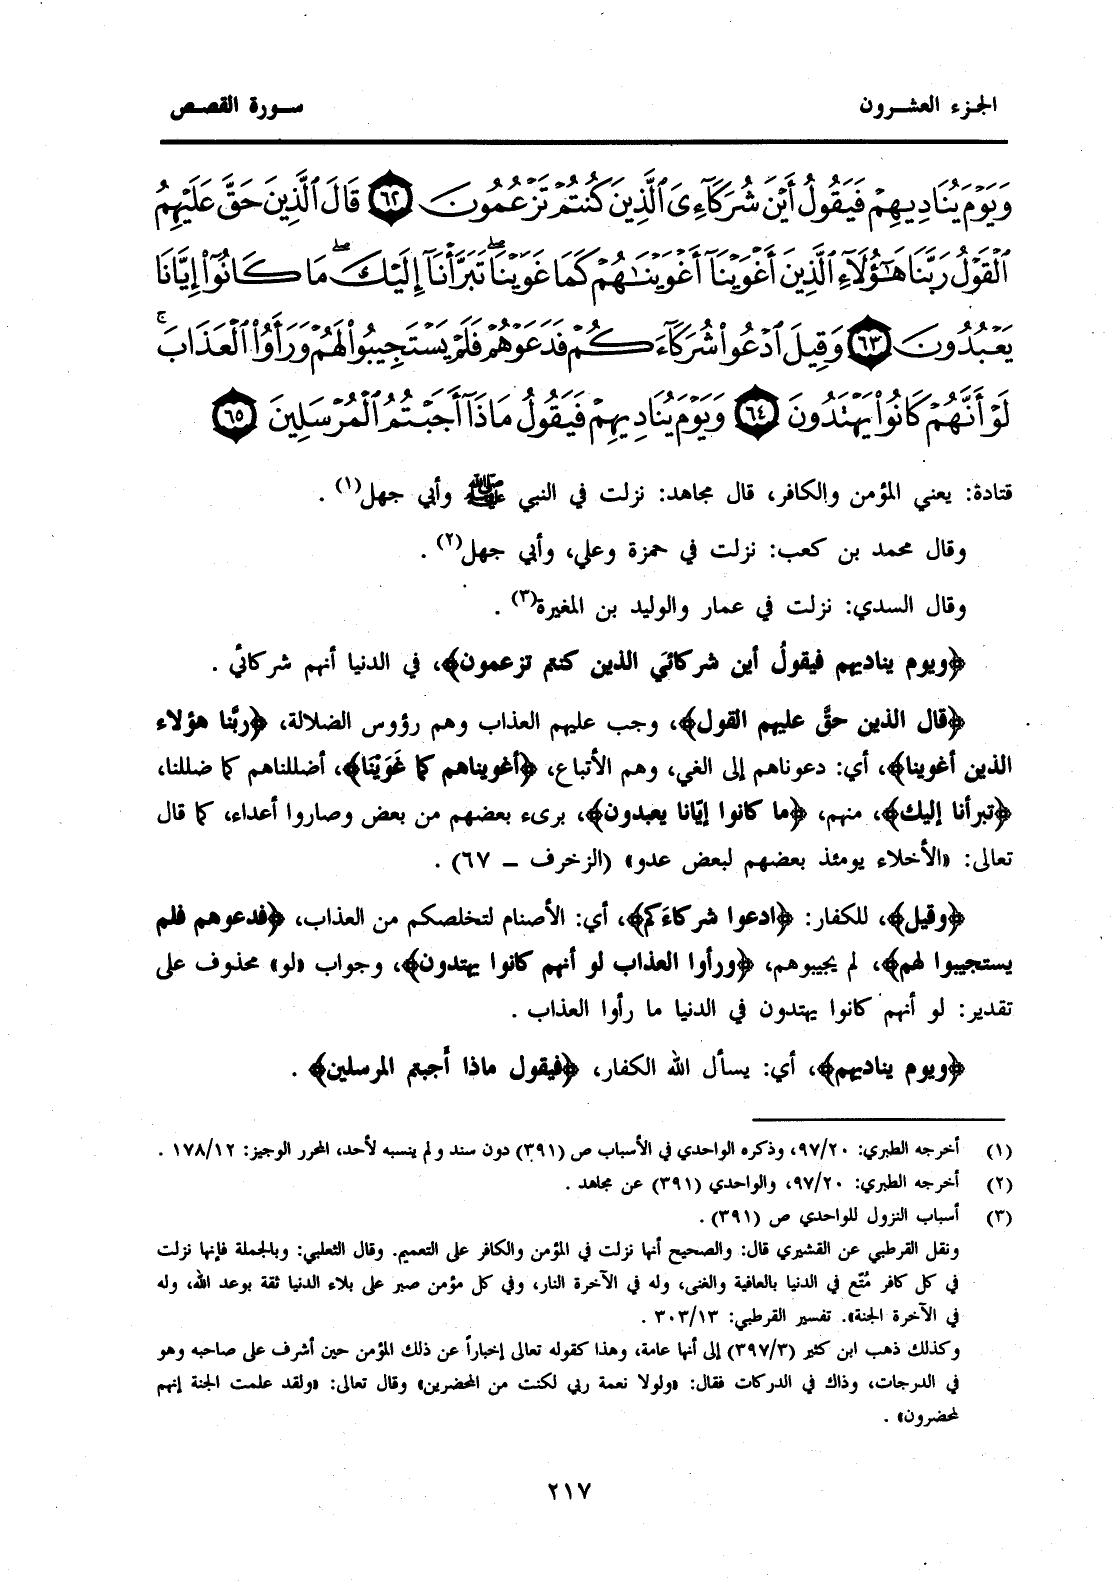 الجزء العشرون
سورة القصص
وَيَوْمَ يُنَادِيهِمْ فَيَقُولُ أَيْنَ شُرَكَآءِىَ ٱلَّذِينَ كُنتُمْ تَزْعُمُونَ ﴿٦٢﴾ قَالَ ٱلَّذِينَ حَقَّ عَلَيْهِمُ
ٱلْقَوْلُ رَبَّنَا هَٰٓؤُلَآءِ ٱلَّذِينَ أَغْوَيْنَآ أَغْوَيْنَٰهُمْ كَمَا غَوَيْنَا ۖ تَبَرَّأْنَآ إِلَيْكَ ۖ مَا كَانُوٓا۟ إِيَّانَا
يَعْبُدُونَ ﴿٦٣﴾ وَقِيلَ ٱدْعُوا۟ شُرَكَآءَكُمْ فَدَعَوْهُمْ فَلَمْ يَسْتَجِيبُوا۟ لَهُمْ وَرَأَوُا۟ ٱلْعَذَابَ ۚ
لَوْ أَنَّهُمْ كَانُوا۟ يَهْتَدُونَ ﴿٦٤﴾ وَيَوْمَ يُنَادِيهِمْ فَيَقُولُ مَاذَآ أَجَبْتُمُ ٱلْمُرْسَلِينَ ﴿٦٥﴾
قتادة: يعني المؤمن والكافر، قال مجاهد: نزلت في النبي ﷺ وأبي جهل(١) .
وقال محمد بن كعب: نزلت في حمزة وعلي، وأبي جهل(٢) .
وقال السدي: نزلت في عمار والوليد بن المغيرة(٣) .
﴿ويوم يناديهم فيقولُ أين شركائيَ الذين كنتم تزعمون﴾، في الدنيا أنهم شركائي .
﴿قال الذين حقَّ عليهم القول﴾، وجب عليهم العذاب وهم رؤوس الضلالة، ﴿ربَّنا هؤلاء
الذين أغوينا﴾، أي: دعوناهم إلى الغي، وهم الأتباع، ﴿أغويناهم كما غَوَيْنَا﴾، أضللناهم كما ضللنا،
﴿تبرأنا إليك﴾، منهم، ﴿ما كانوا إيّانا يعبدون﴾، برىء بعضهم من بعض وصاروا أعداء، كما قال
تعالى: «الأخلاء يومئذ بعضهم لبعض عدو» (الزخرف – ٦٧) .
﴿وقيل﴾، للكفار: ﴿ادعوا شركاءَكم﴾، أي: الأصنام لتخلصكم من العذاب، ﴿فدعوهم فلم
يستجيبوا لهم﴾، لم يجيبوهم، ﴿ورأوا العذاب لو أنهم كانوا يهتدون﴾، وجواب «لو» محذوف على
تقدير: لو أنهم كانوا يهتدون في الدنيا ما رأوا العذاب .
﴿ويوم يناديهم﴾، أي: يسأل الله الكفار، ﴿فيقول ماذا أَجبتم المرسلين﴾ .
(١) أخرجه الطبري: ٩٧/٢٠، وذكره الواحدي في الأسباب ص (٣٩١) دون سند ولم ينسبه لأحد، المحرر الوجيز: ١٧٨/١٢ .
(٢) أخرجه الطبري: ٩٧/٢٠، والواحدي (٣٩١) عن مجاهد .
(٣) أسباب النزول للواحدي ص (٣٩١) .
ونقل القرطبي عن القشيري قال: والصحيح أنها نزلت في المؤمن والكافر على التعميم. وقال الثعلبي: وبالجملة فإنها نزلت
في كل كافر مُتّع في الدنيا بالعافية والغنى، وله في الآخرة النار، وفي كل مؤمن صبر على بلاء الدنيا ثقة بوعد الله، وله
في الآخرة الجنة». تفسير القرطبي: ٣٠٣/١٣ .
وكذلك ذهب ابن كثير (٣٩٧/٣) إلى أنها عامة، وهذا كقوله تعالى إخباراً عن ذلك المؤمن حين أشرف على صاحبه وهو
في الدرجات، وذاك في الدركات فقال: «ولولا نعمة ربي لكنت من المحضرين» وقال تعالى: «ولقد علمت الجنة إنهم
لمحضرون» .
٢١٧